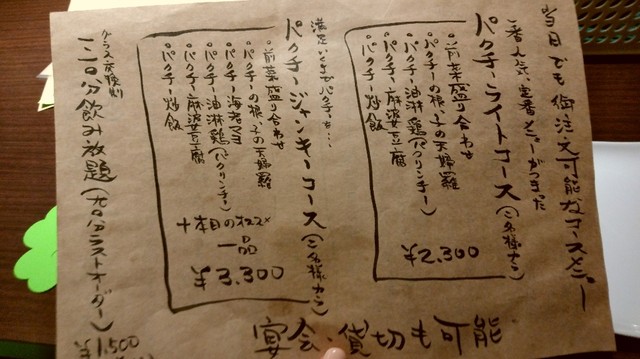 当日でも御注文可能なコースメニュー
一番人気、定番メニューがつまった
パクチーライトコース(2名様から)
・前菜盛り合わせ
・パクチーの根っ子の天婦羅
・パクチー油淋鶏(パクリンチー)
・パクチー麻婆豆腐
・パクチー炒飯
¥2,300
満足いくまでパクチーを…
パクチージャンキーコース(2名様から)
・前菜盛り合わせ
・パクチーの根っ子の天婦羅
・パクチー海老マヨ
・パクチー油淋鶏(パクリンチー)
・パクチー麻婆豆腐
・パクチー炒飯
+本日のオススメ
一品
¥3,300
グラス交換制
120分飲み放題(90分ラストオーダー)
¥1,500
宴会・貸切も可能